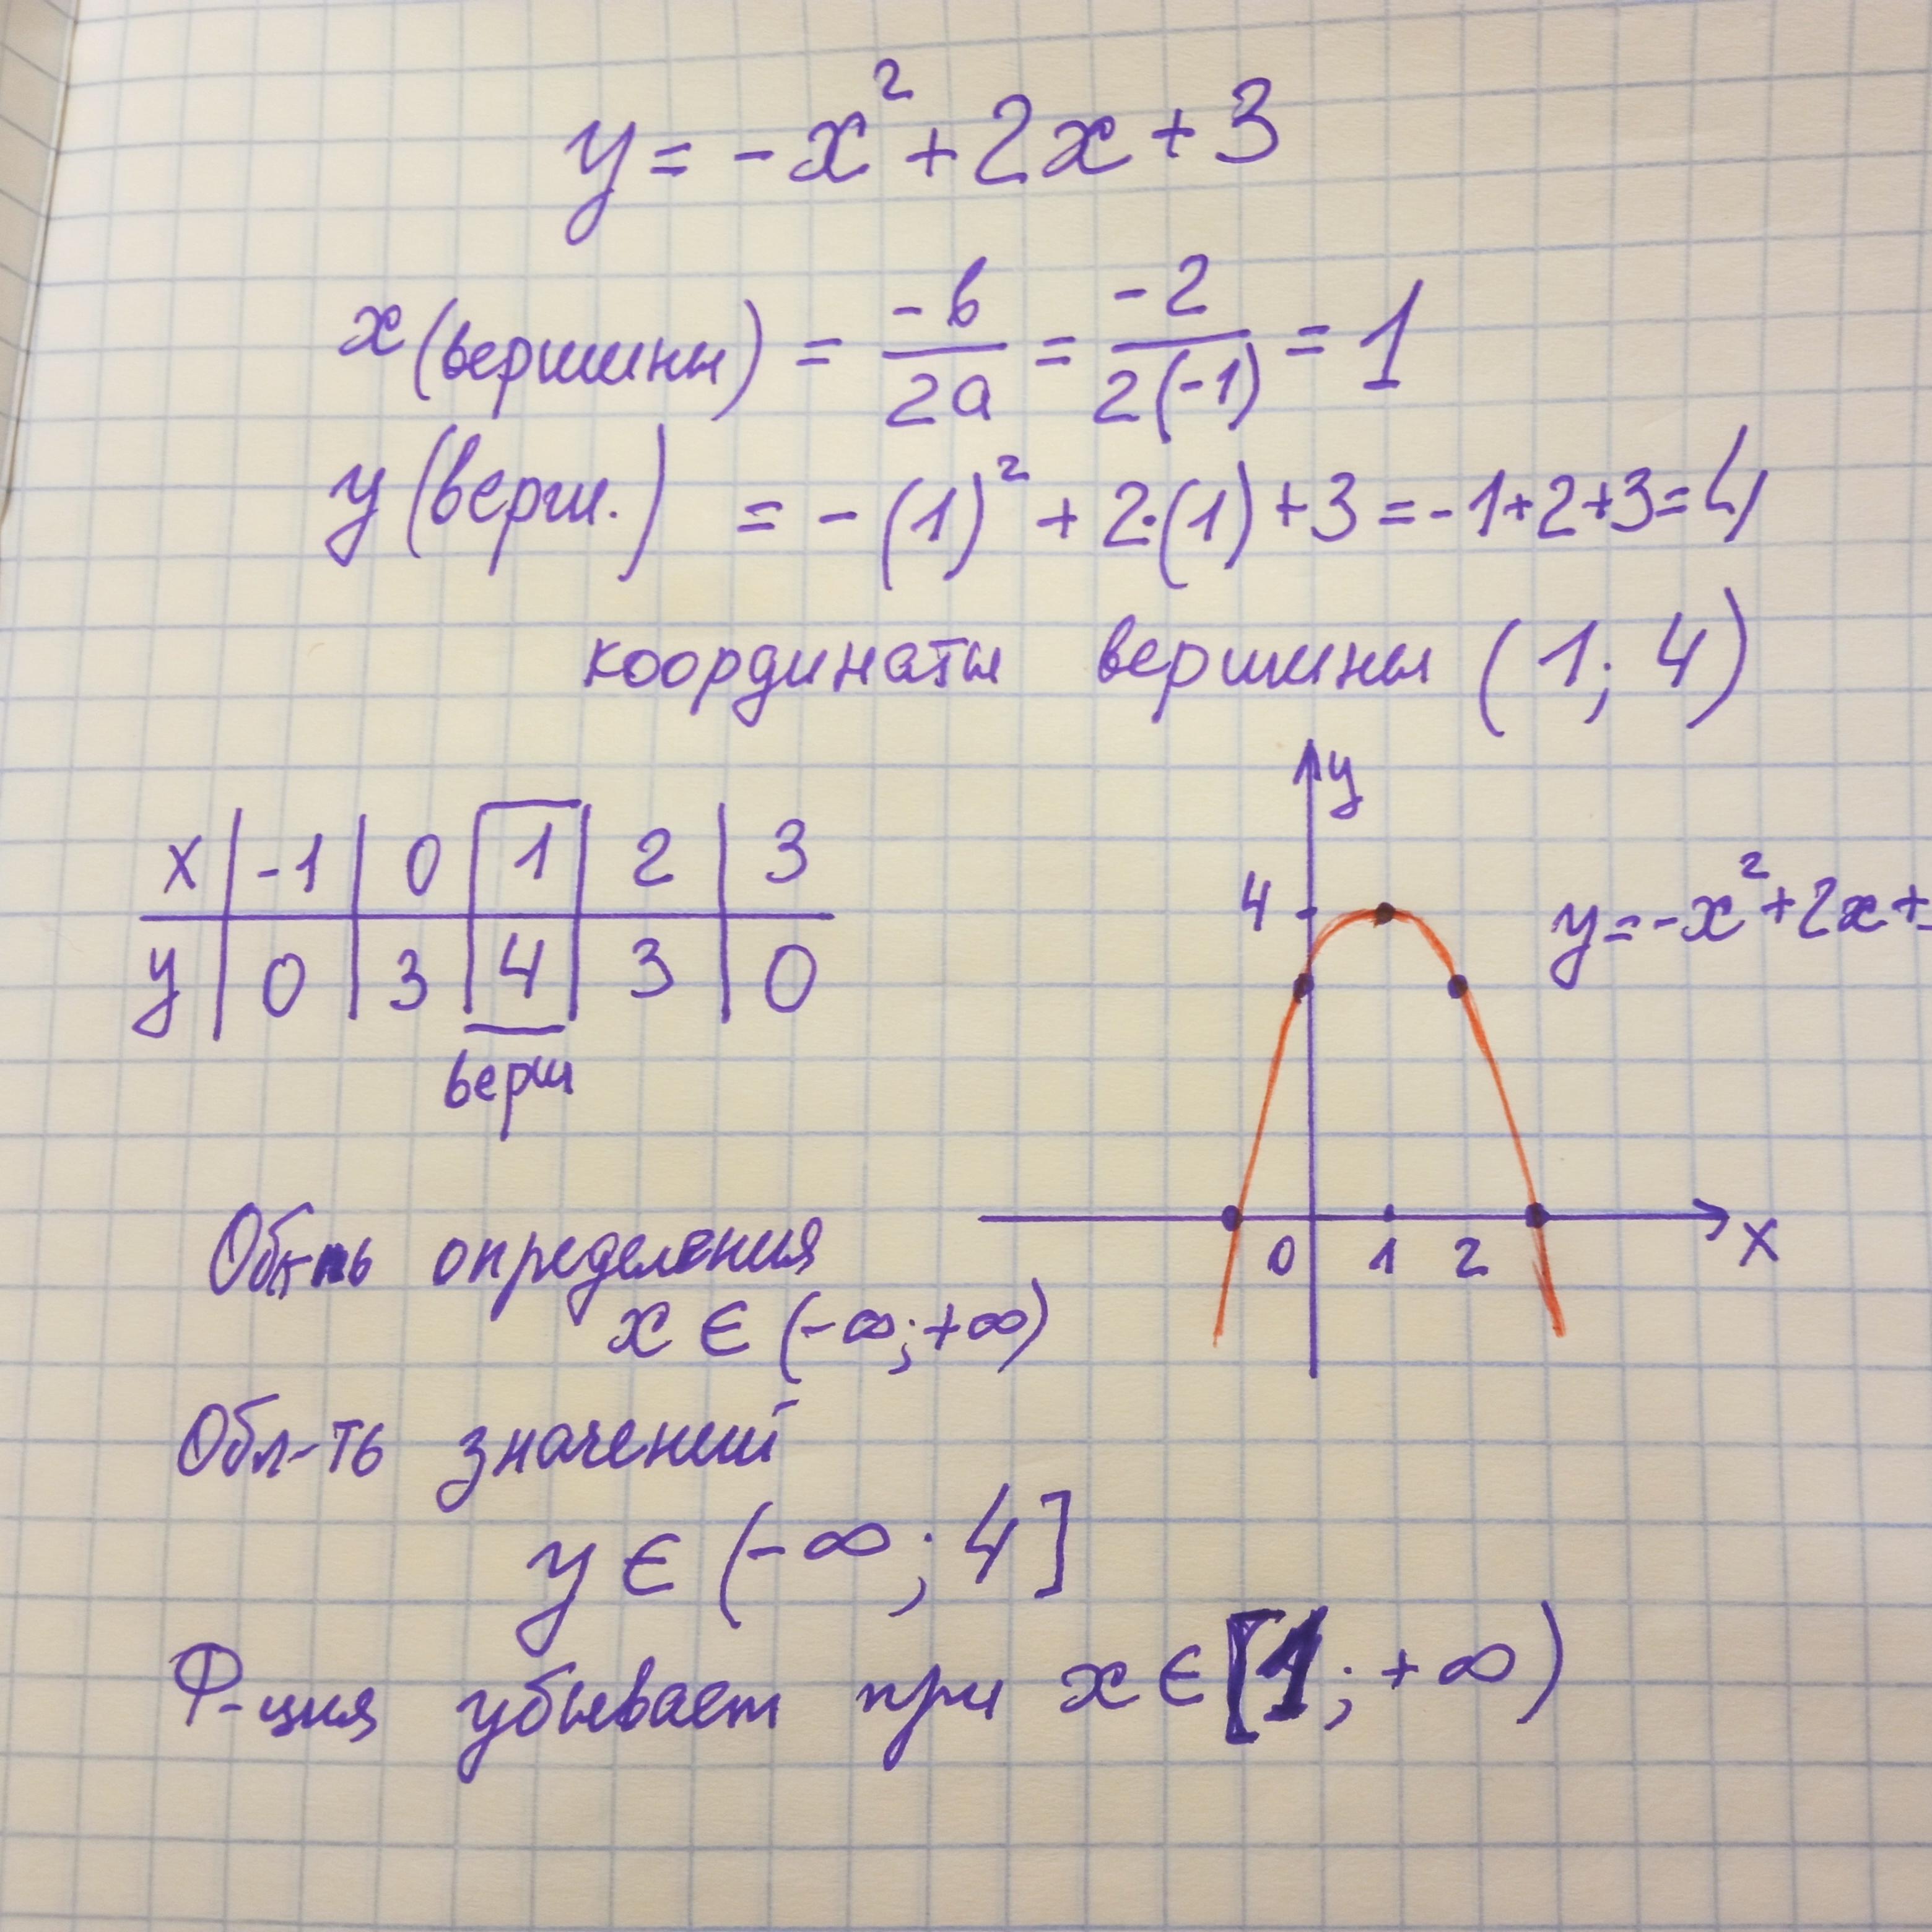 y = -x² + 2x + 3
x (вершины) = -b/2a = -2/2(-1) = 1
y (верш.) = -(1)² + 2·(1) + 3 = -1+2+3=4
координаты вершины (1; 4)
x | -1 | 0 | 1 | 2 | 3
y | 0 | 3 | 4 | 3 | 0
верш
y
4
y=-x²+2x+
0 1 2 x
определения
x ∈ (-∞;+∞)
Обл-ть значений
y ∈ (-∞; 4]
Ф-ция убывает при x ∈ [1; +∞)